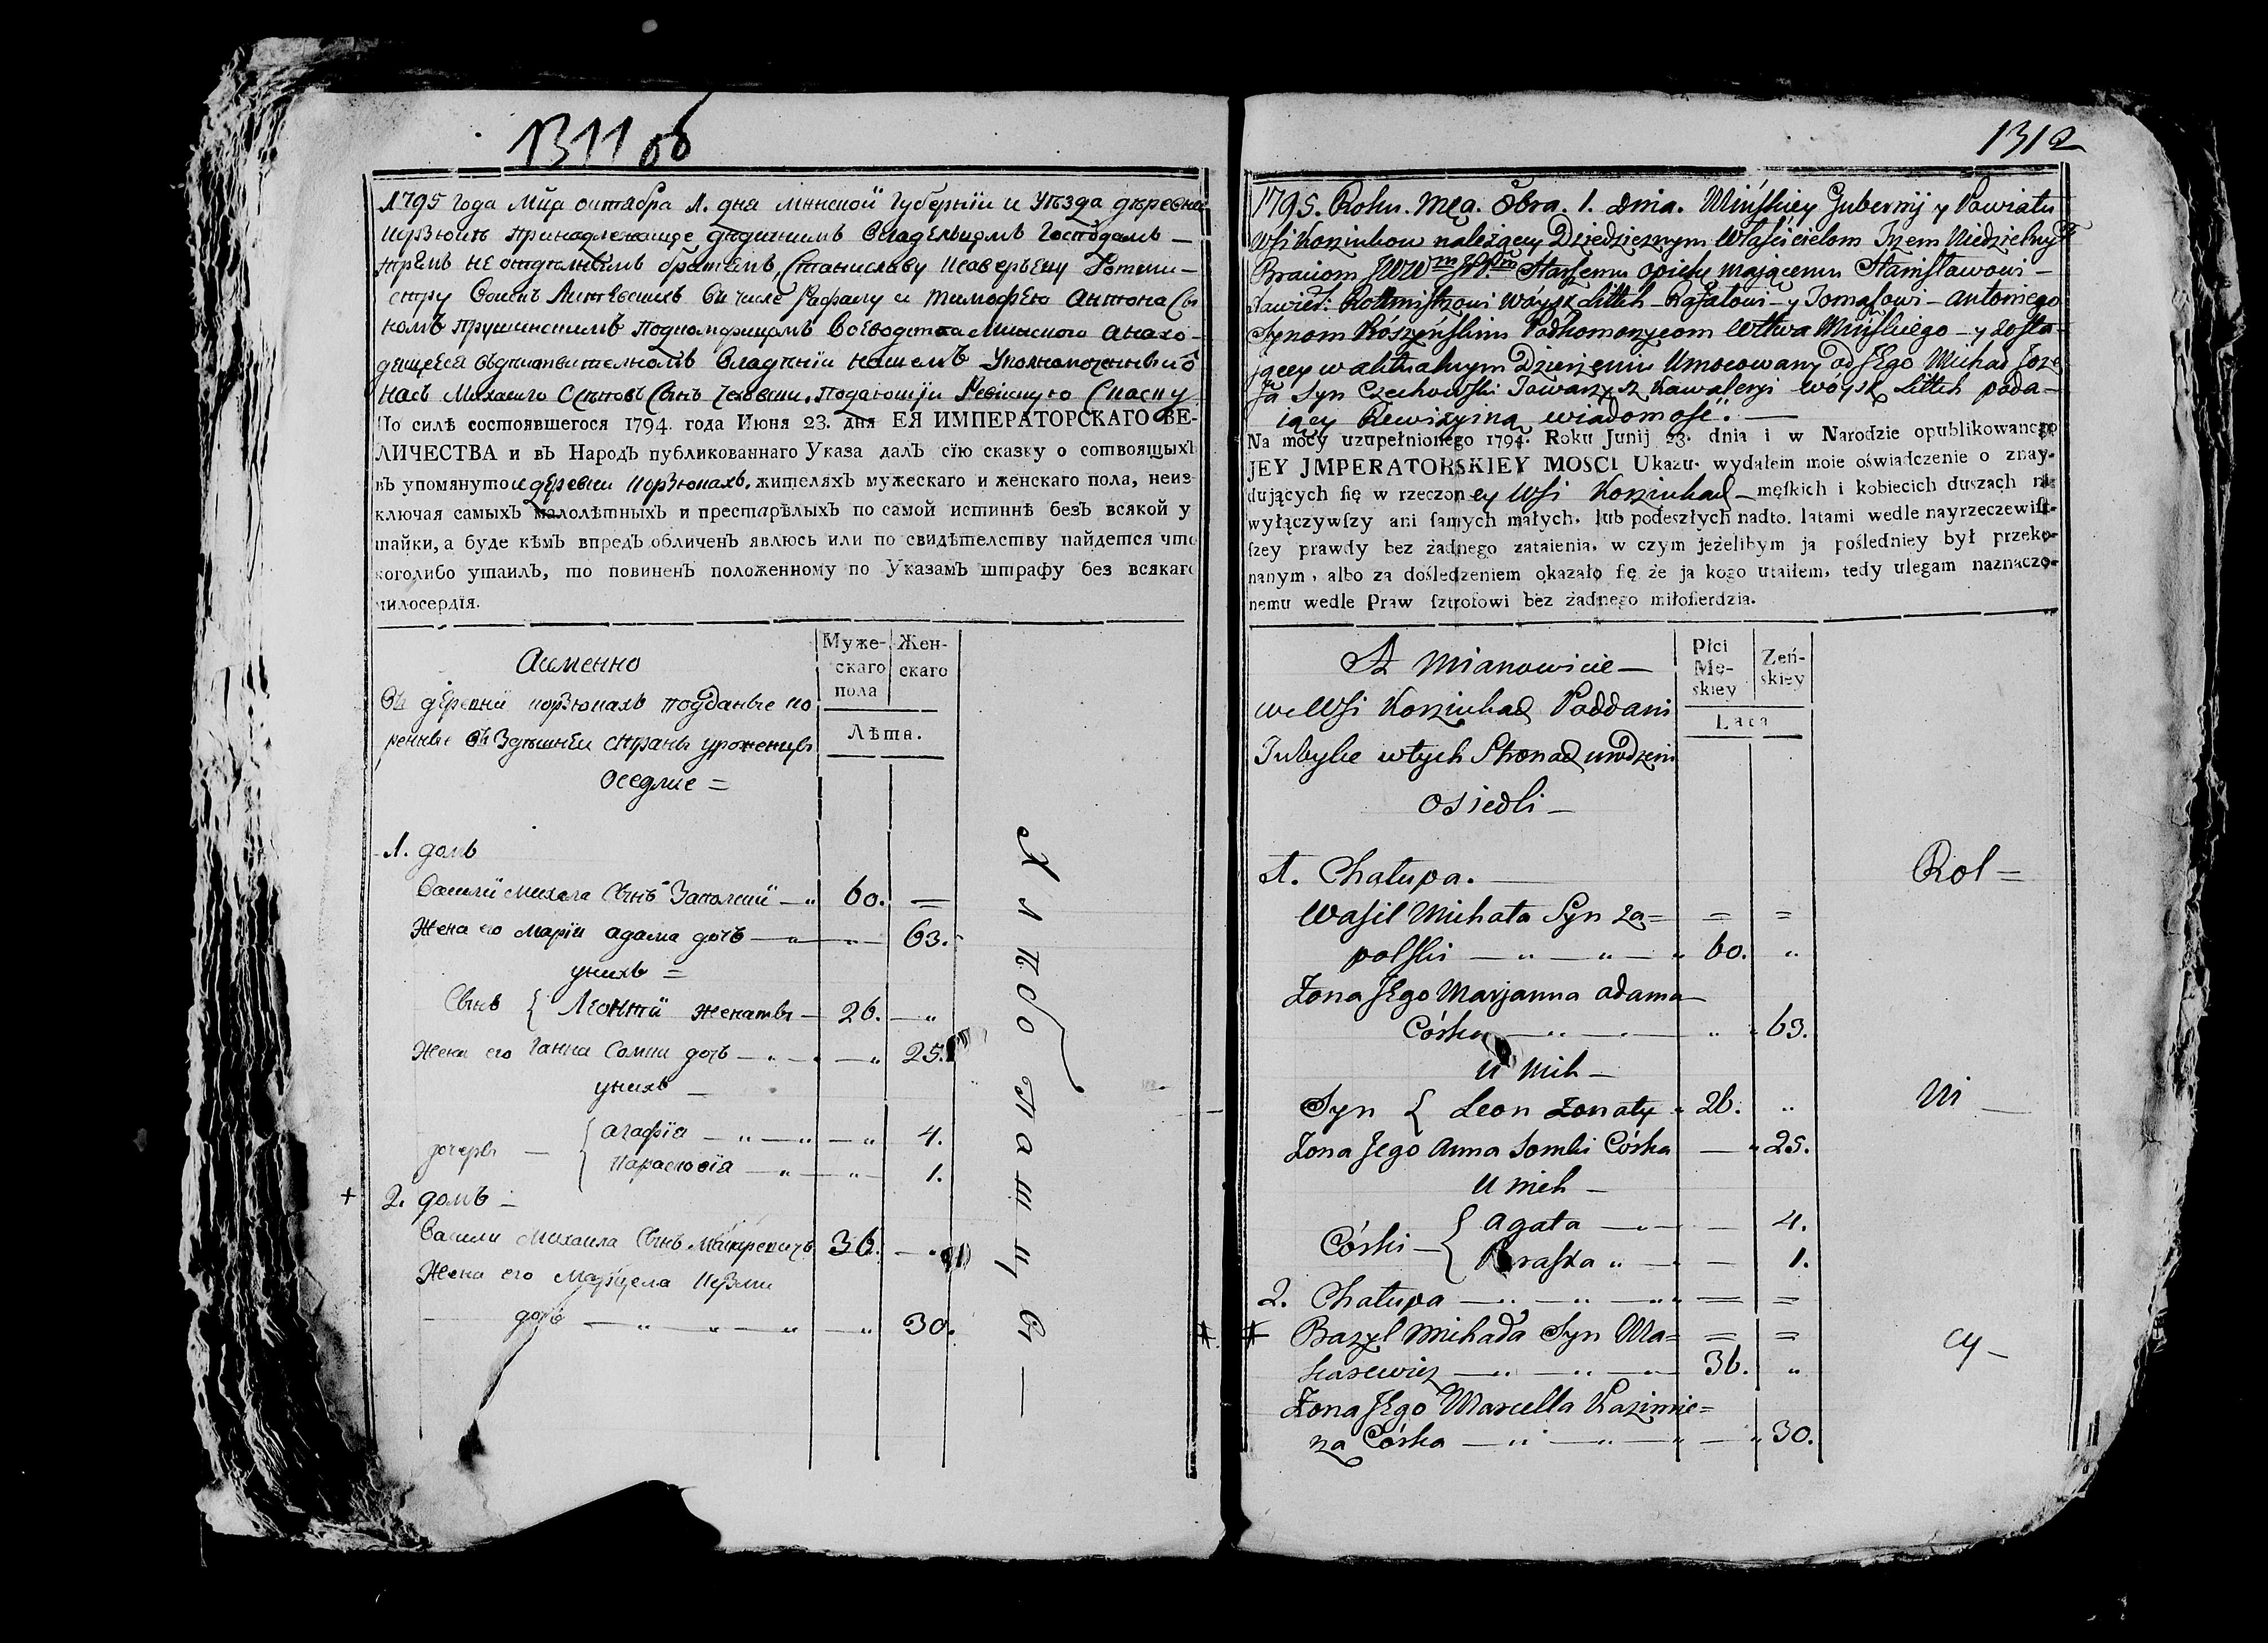 1311 об
1795 года Мца октября 1. дня минской Губернїи и Уѣзда деревни
принадлежаще дѣдичнимъ Владельцомъ Господамъ —
тремъ братямъ, Станиславу
Войскъ Литевскихъ въ числе Рафалу и Тимофею Антона Сы
номъ Прушинскимъ Подкоморицомъ Воеводства Минского а нахо-
дящейся въдѣйствителномъ Владѣнїи нашемъ Уполномоченный ѿ
насъ Михайло Сынъ Чеховски, подающїи Ревискую Сказку
По силѣ состоявшегося 1794. года Июня 23. дня ЕЯ ИМПЕРАТОРСКАГО ВЕ-
ЛИЧЕСТВА и въ Народъ публикованнаго Указа далъ сїю сказку о состоящыхъ
въ упомянутои деревни жителяхъ мужескаго и женскаго пола, неиз
ключая самыхъ малолѣтныхъ и престарѣлыхъ по самой истиннѣ безъ всякой у
тайки, а буде кѣмъ впредъ обличенъ явлюсь или по свидѣтелству найдется что
коголибо утаилъ, то повиненъ положенному по Указамъ штрафу без всякаго
милосердїя.
Аименно
Муже-
скаго
пола
Жен-
скаго
Лѣта.
Въ деревни подданые ко
ренные въ Здешней страны уроженцы
оседлие =
1. домъ
Василий михала Сынъ Заполский — 60. =
Жена его Марїи адама дочъ — 63.
унихъ =
Сынъ { Леонтїй женаты — 26. —
Жена его Ганна Сомки дочъ — 25.
унихъ —
дочеры — { Агафїа — 4.
Парасковїа — 1.
+ 2. домъ —
Васили Михаила Сынъ Макаревичъ 36. —
Жена его Марцела Кузми
дочъ — 30.
Хлебопашцы —
1312
1795. Roku. Mca. 8bra. 1. dnia. Mińskiey Gubernij y Powiatu
Wsi należącey Dziedzicznym Właścicielom Trzem Niedzielnym
Braciom Starszemu opiekę mającemu Stanisławowi —
Rotmistrzowi Wóysk Littch — Rafałowi — y Tomaszowi — Antoniego
Synom Podkomorzycom Wttwa Mińskiego — y zosta-
jącey w aktualnym Dzierzeniu Umocowany od JEgo Michał Joze
fa Syn Czechowski Towarzysz Kawaleryi Wóysk Littch poda-
iący Rewizyiną wiadomość. —
Na mocy uzupełnionego 1794. Roku Junij 23. dnia i w Narodzie opublikowanego
JEY JMPERATORSKIEY MOSCI Ukazu. wydałem moie oświadczenie o znay-
dujących się w rzeczoney Wsi — męskich i kobiecich duszach nie
wyłączywszy ani samych małych. lub podeszłych nadto. latami wedle nayrzeczewist-
szey prawdy bez żadnego zataienia. w czym jeżelibym ja pośledniey był przeko-
nanym, albo za dośledzeniem okazało się że ja kogo utaiłem, tedy ulegam naznaczo-
nemu wedle Praw sztrofowi bez żadnego miłosierdzia.
A Mianowicie —
Płci
Mę-
skiey
Zeń-
skiey
Lata
we Wsi Poddani
Tubylce w tych Stronach urodzeni
osiedli —
1. Chałupa. —
Wasil Michała Syn Za= = =
polski — 60.
Żona JEgo Marjanna adama —
Córka — 63.
U nich —
Syn { Leon Żonaty 26.
Żona Jego Anna Somki Córka — 25.
U nich —
Córki — { Agata — 4.
Praska — 1.
2. Chałupa — = =
# # Bazyl Michała Syn Ma= = =
karewicz — 36.
Żona JEgo Marcella Kazimie=
rza Córka — 30.
Rol =
ni —
cy —